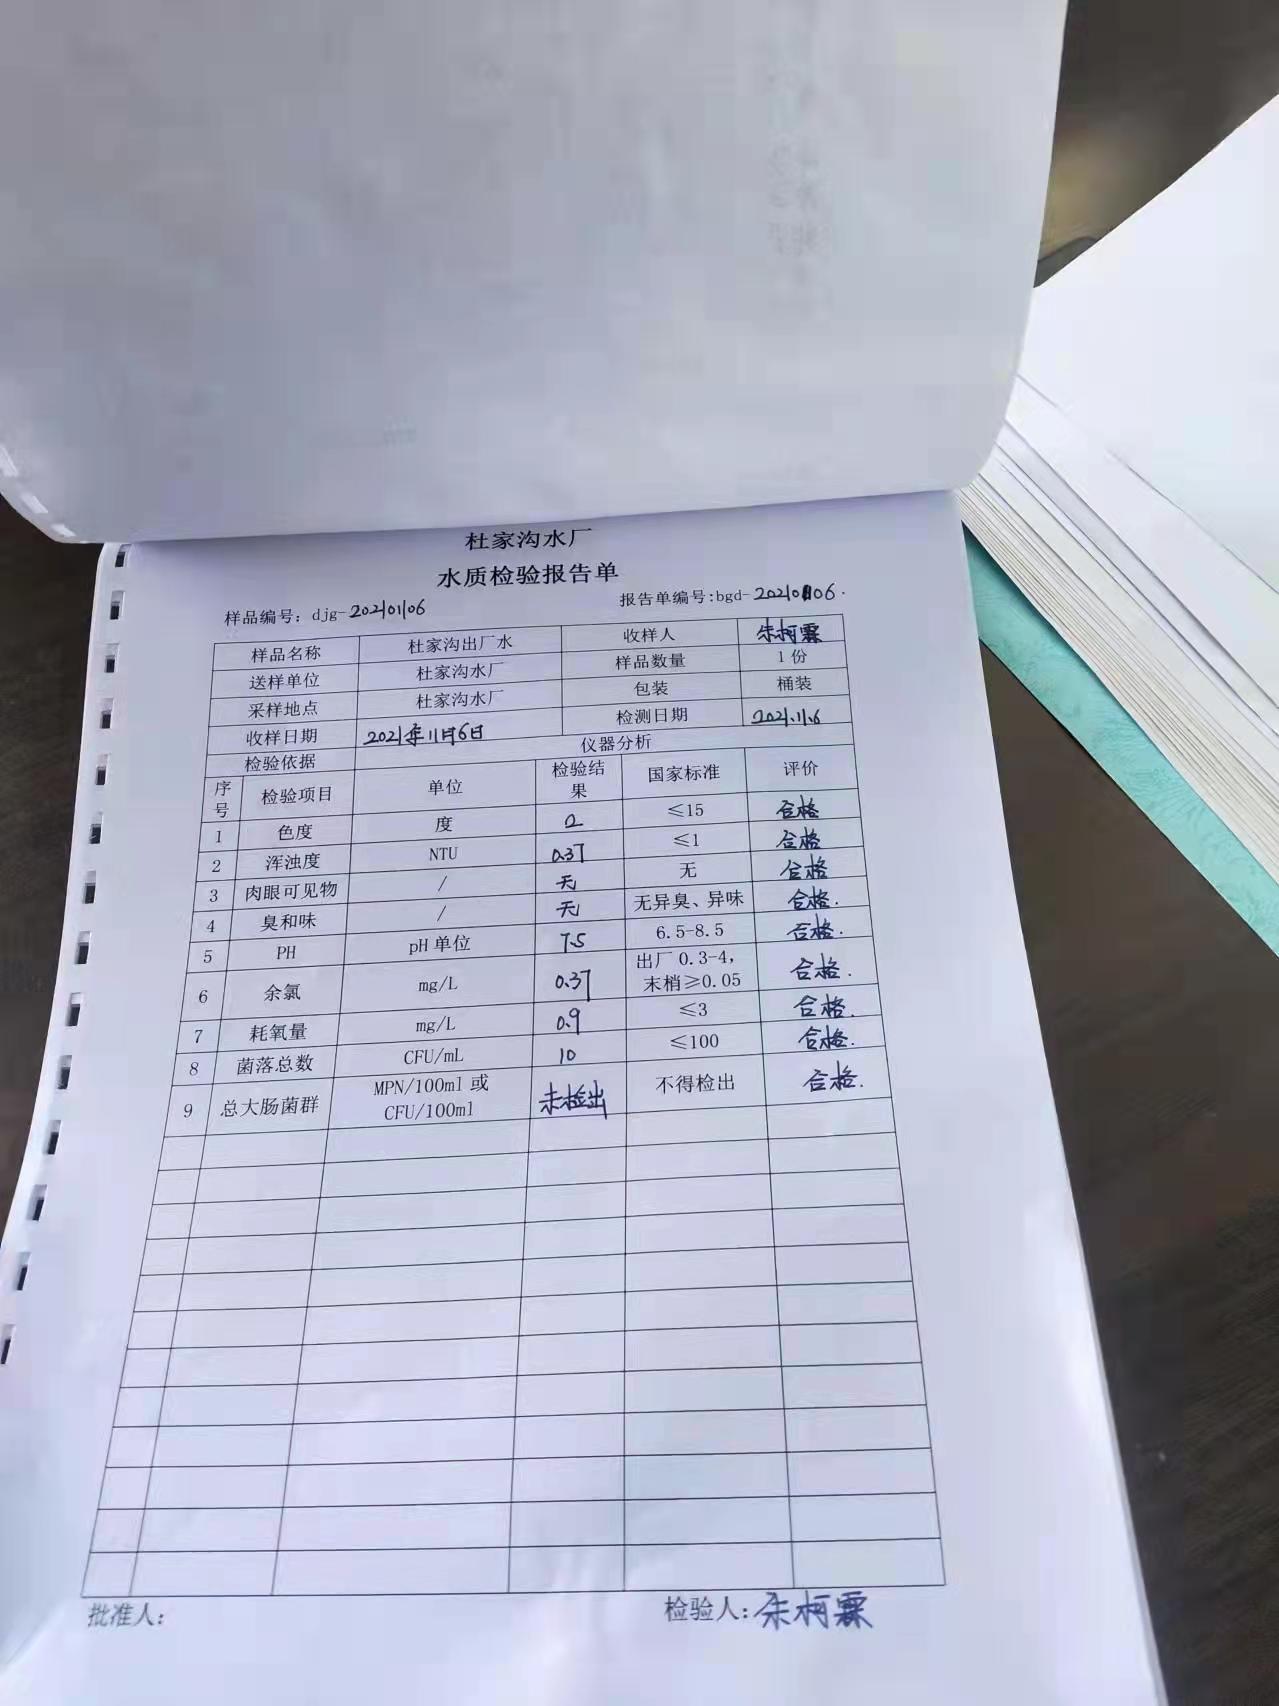 杜家沟水厂
水质检验报告单
样品编号：djg-20210106 报告单编号:bgd-20210106.
样品名称 杜家沟出厂水 收样人 朱柯霖
送样单位 杜家沟水厂 样品数量 1 份
采样地点 杜家沟水厂 包装 桶装
收样日期 2021年11月6日 检测日期 2021.11.6
检验依据 仪器分析
序号 检验项目 单位 检验结果 国家标准 评价
1 色度 度 2 ≤15 合格
2 浑浊度 NTU 0.37 ≤1 合格
3 肉眼可见物 / 无 无 合格
4 臭和味 / 无 无异臭、异味 合格.
5 PH pH 单位 7.5 6.5-8.5 合格.
6 余氯 mg/L 0.37 出厂 0.3-4，末梢≥0.05 合格.
7 耗氧量 mg/L 0.9 ≤3 合格.
8 菌落总数 CFU/mL 10 ≤100 合格.
9 总大肠菌群 MPN/100ml 或 CFU/100ml 未检出 不得检出 合格.
批准人： 检验人：朱柯霖